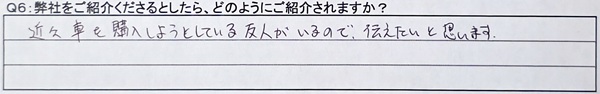 Q6：弊社をご紹介くださるとしたら、どのようにご紹介されますか？
近々車を購入しようとしている友人がいるので、伝えたいと思います。